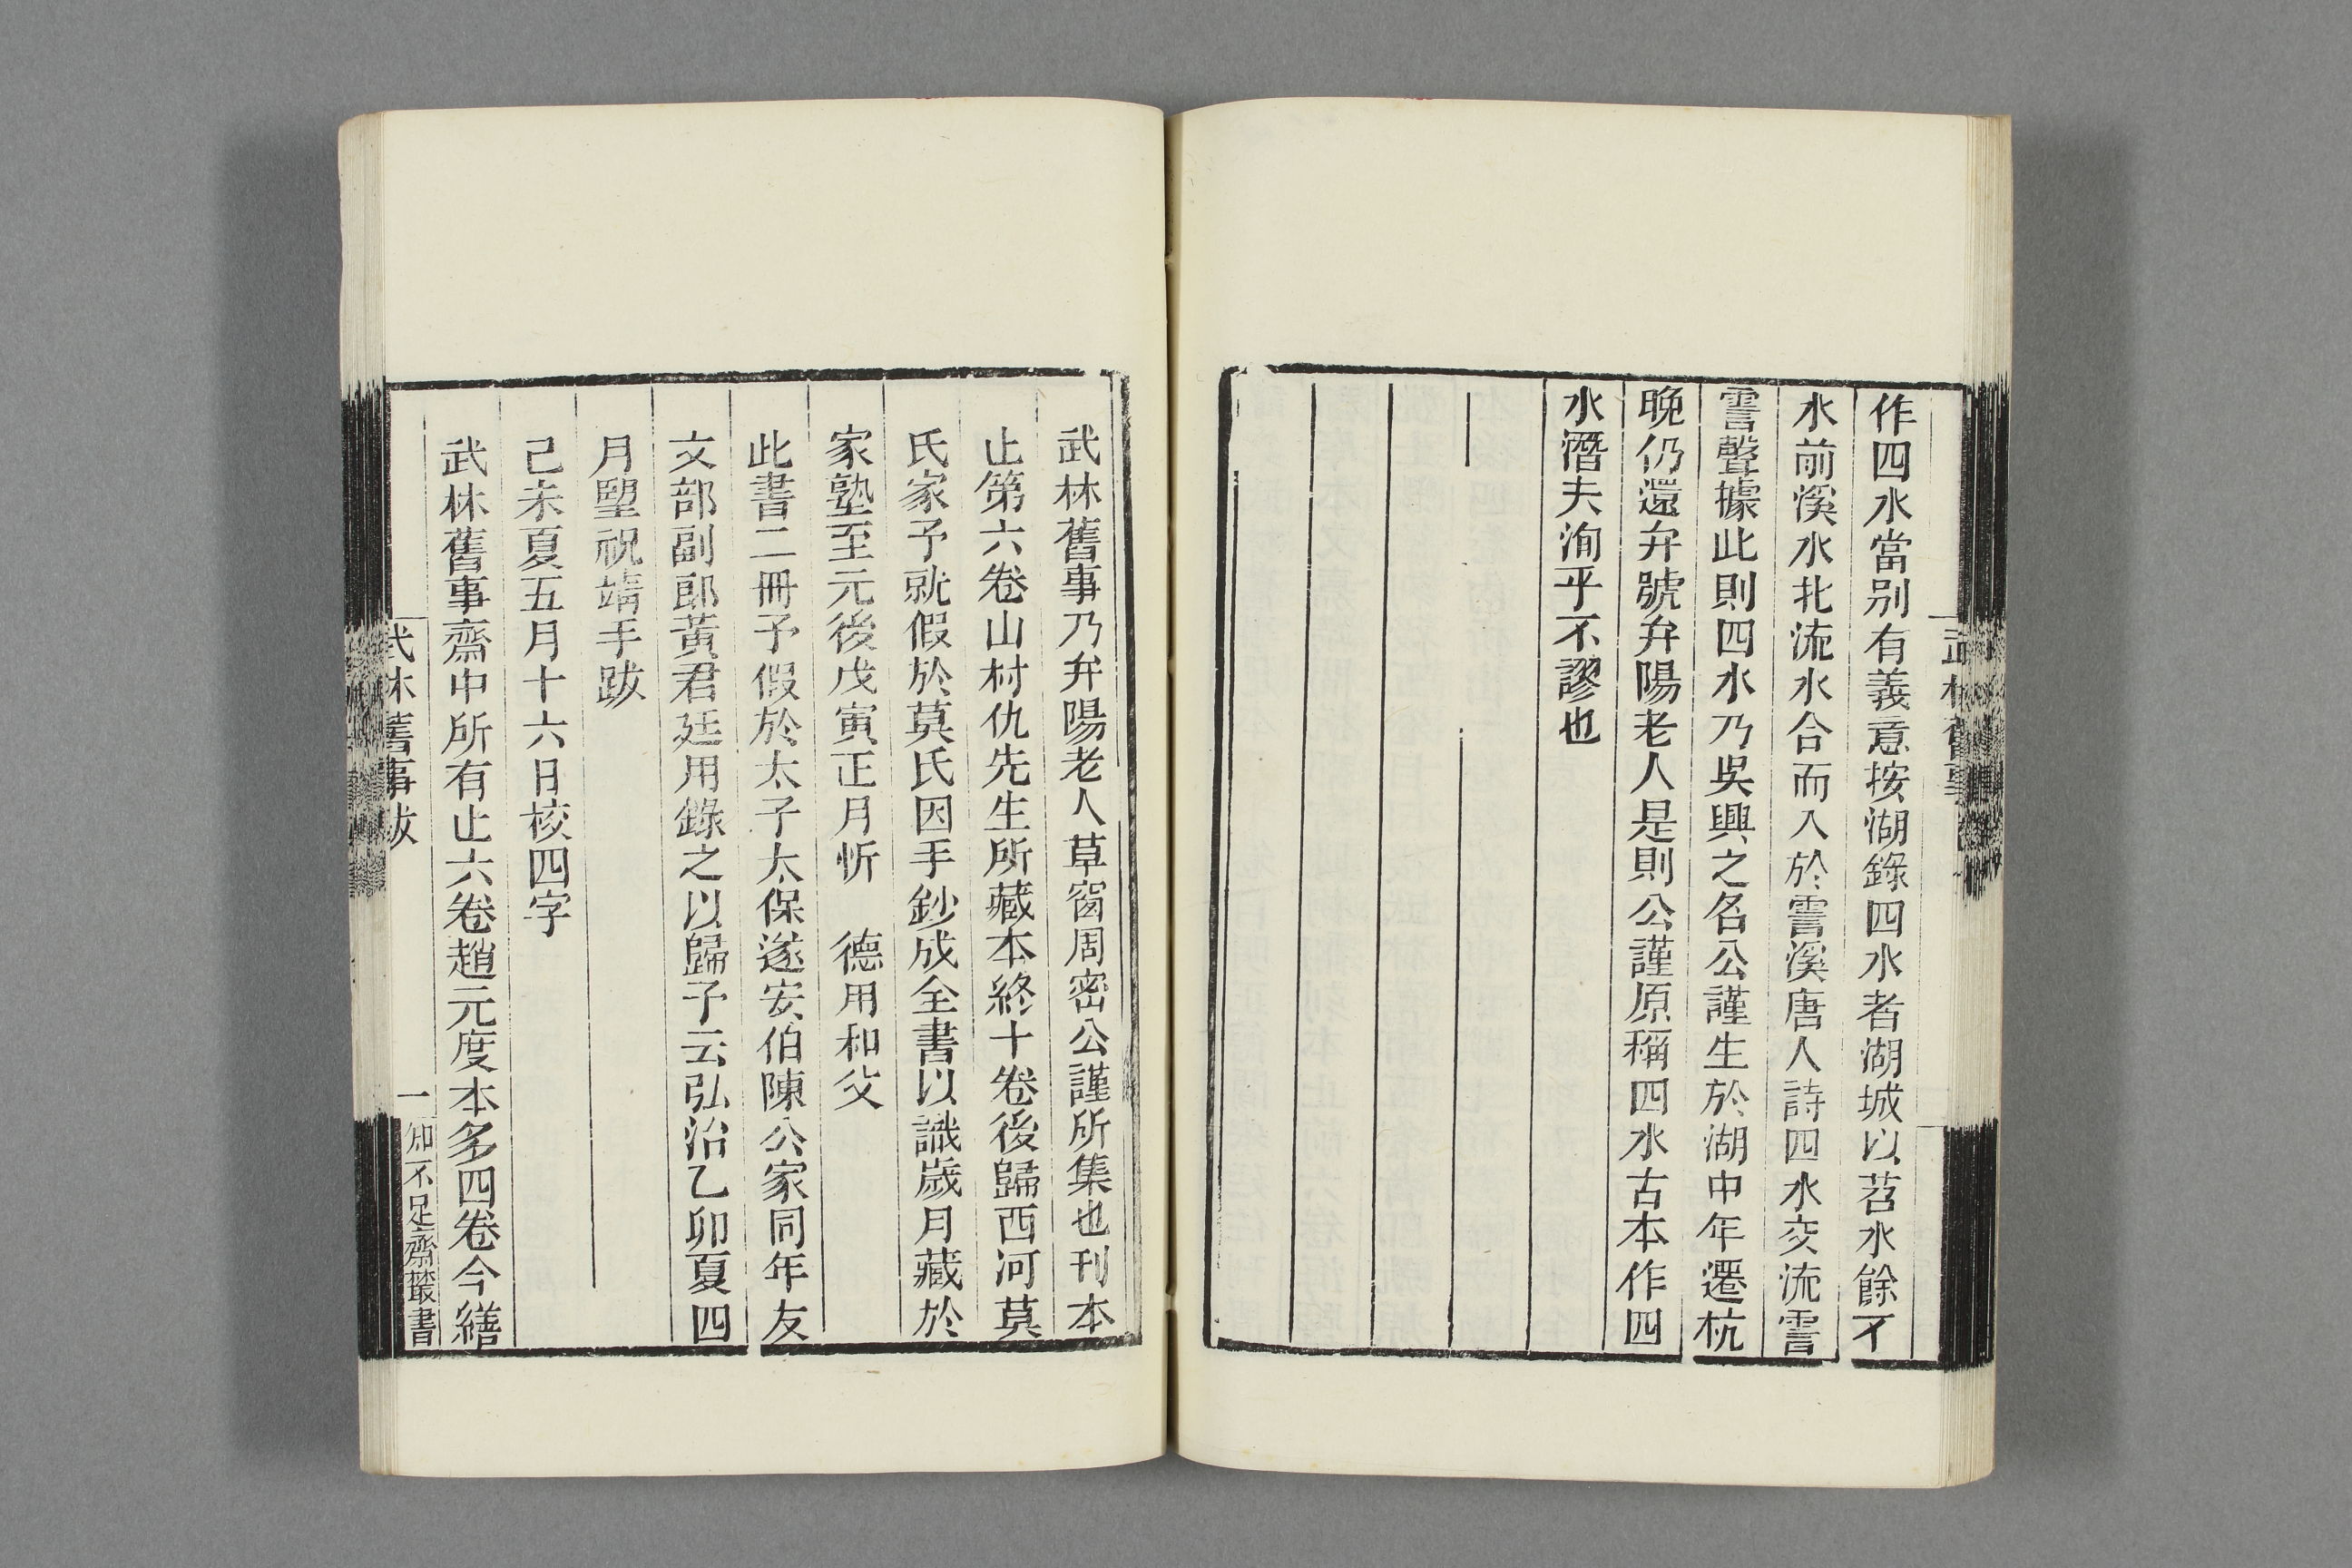 作四水當别有義意按湖錄四水者湖城以苕水餘不
水前溪水北流水合而入於霅溪唐人詩四水交流霅
霅聲據此則四水乃吳興之名公謹生於湖中年遷杭
晚仍還弁號弁陽老人是則公謹原稱四水古本作四
水潛夫洵乎不謬也
武林舊事乃弁陽老人草窗周密公謹所集也刊本
止第六卷山村仇先生所藏本終十卷後歸西河莫
氏家予就假於莫氏因手鈔成全書以識歲月藏於
家塾至元後戊寅正月忻 德用和父
此書二冊予假於太子太保遂安伯陳公家同年友
文部副郎黃君廷用錄之以歸予云弘治乙卯夏四
月朢祝靖手跋
己未夏五月十六日校四字
武林舊事齋中所有止六卷趙元度本多四卷今繕
武林舊事跋
一
知不足齋叢書